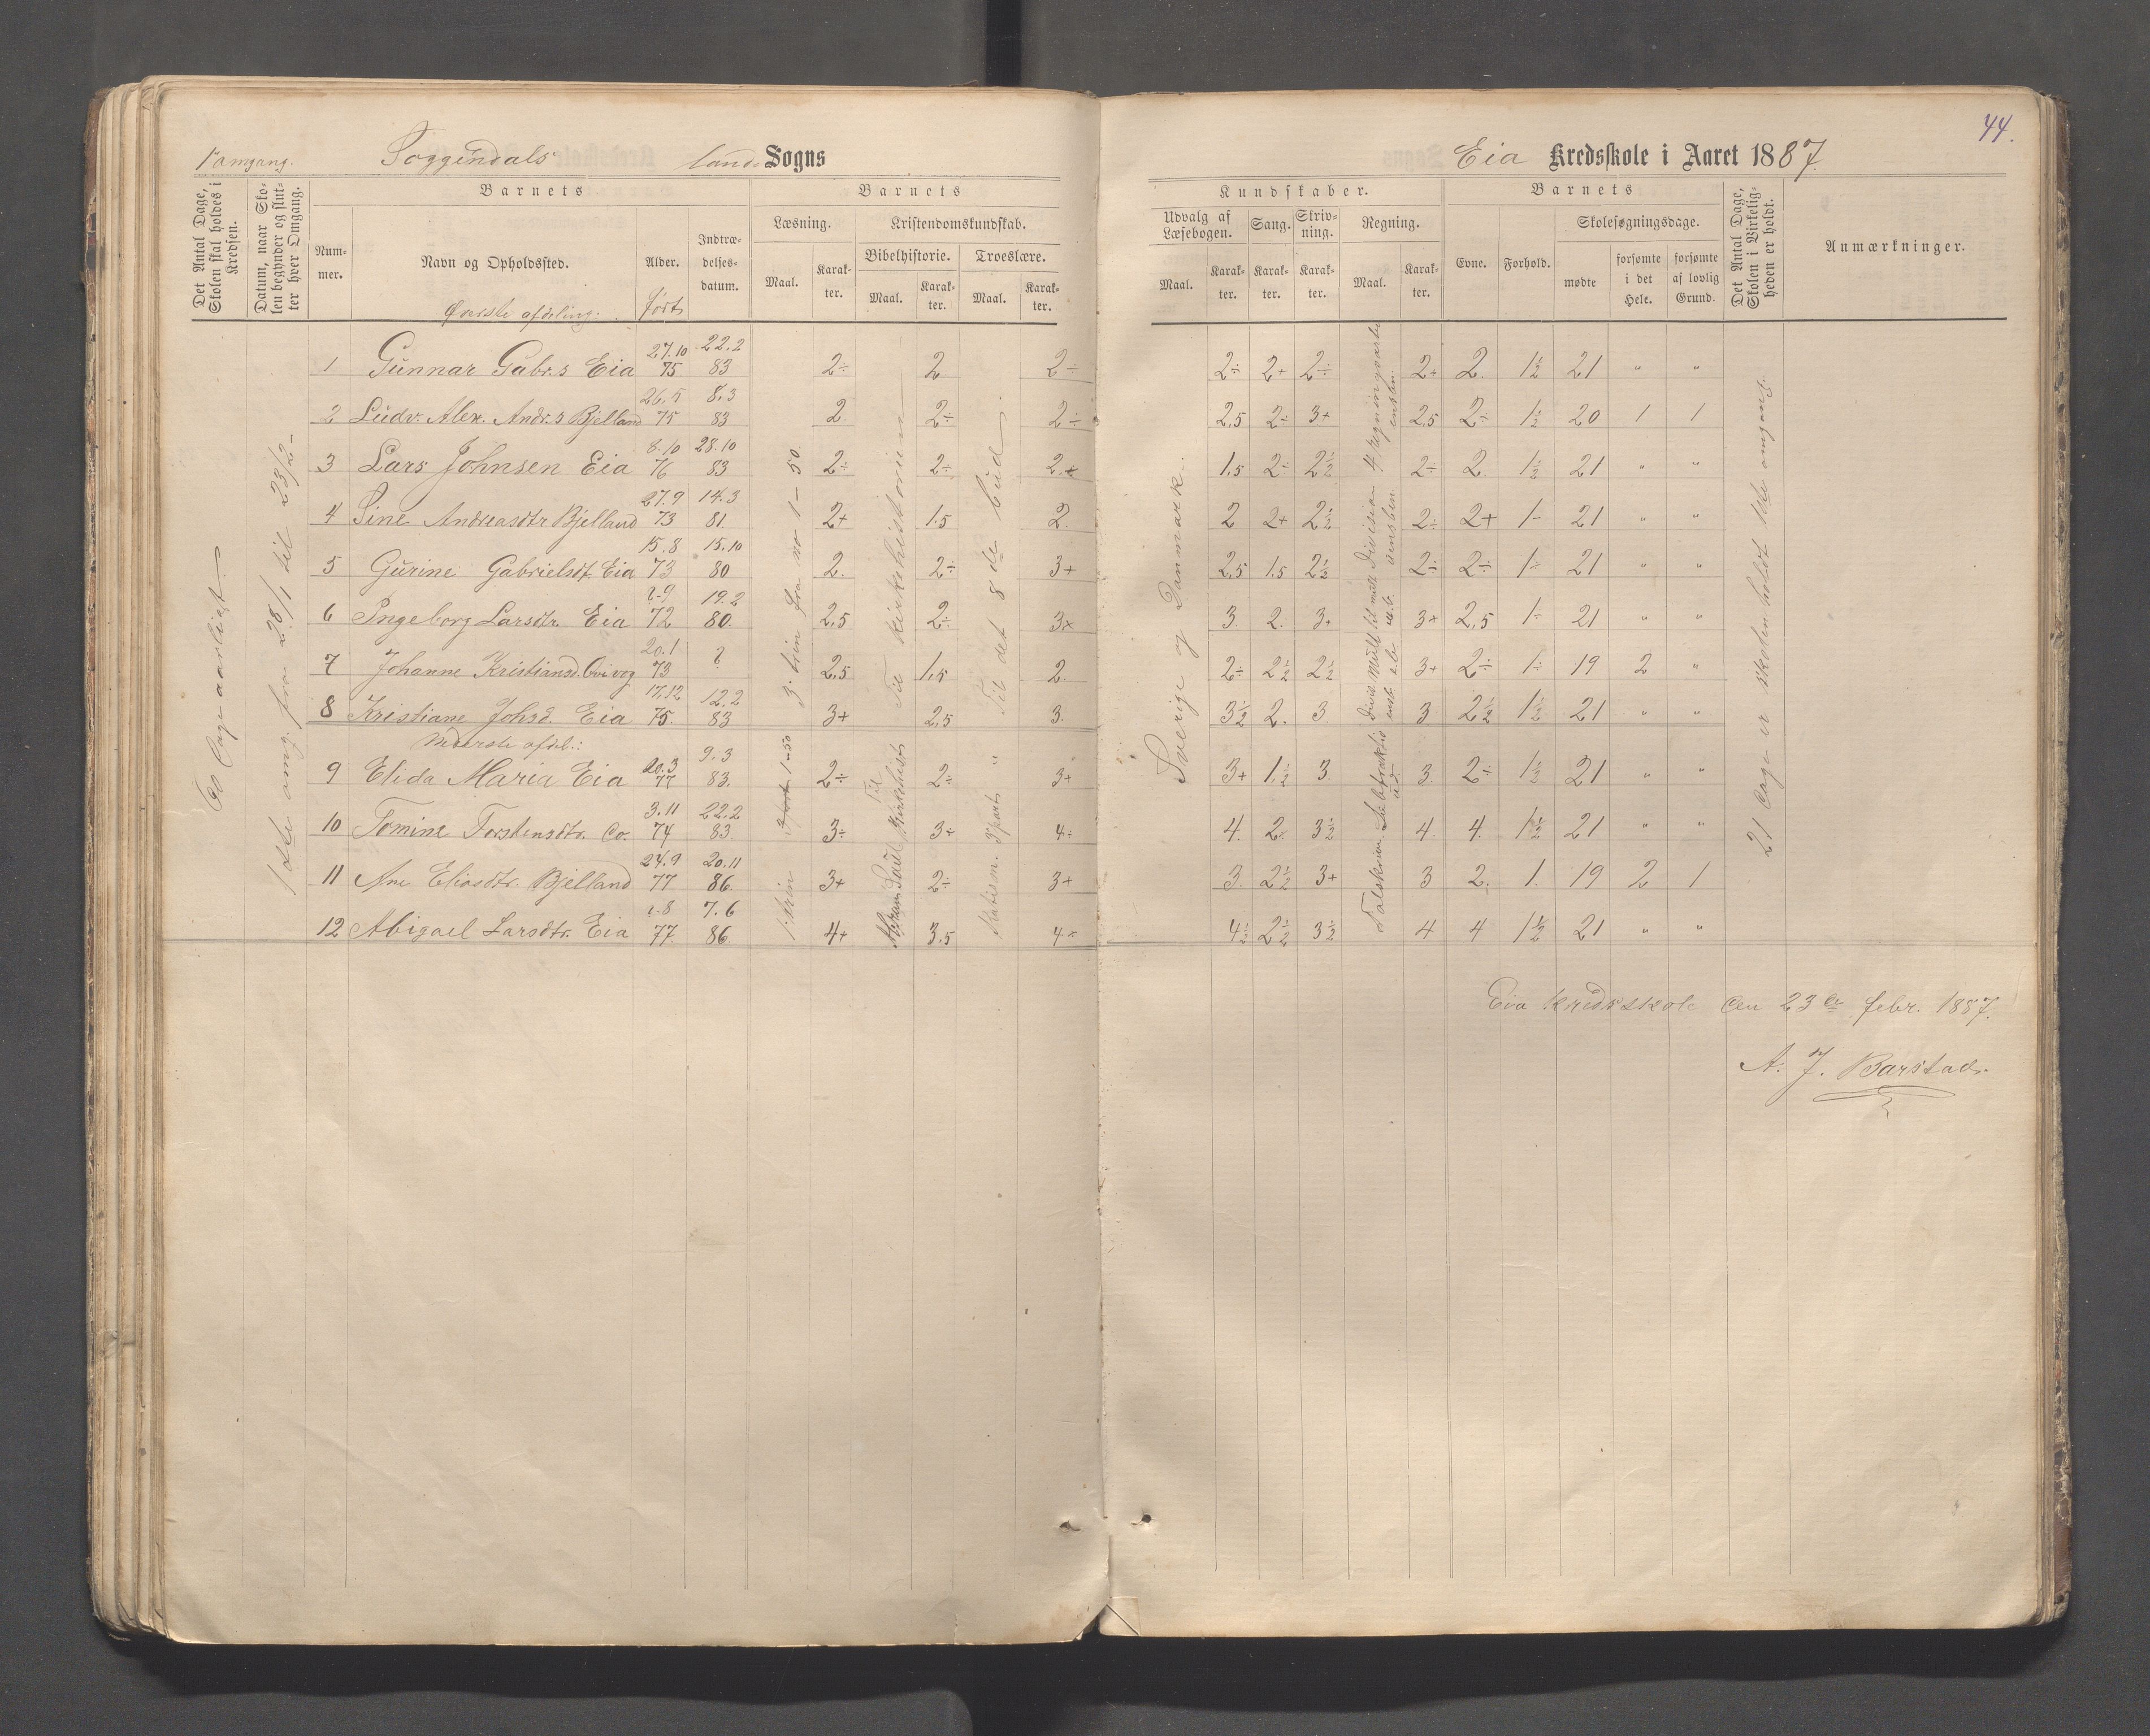 44.
1ste omgang. Soggendals land Sogns
Eia Kredsskole i Aaret 1887.
Det Antal Dage, Skolen skal holdes i Kredsen.
Datum, naar Skolen begynder og slutter hver Omgang.
Barnets
Nummer.
Navn og Opholdssted.
Øverste afdeling.
Alder.
født
Indtrædelsesdatum.
Barnets
Læsning.
Maal.
Karakter.
Kristendomskundskab.
Bibelhistorie.
Maal.
Karakter.
Troeslære.
Maal.
Karakter.
Kundskaber.
Udvalg af Læsebogen.
Maal.
Karakter.
Sang.
Karakter.
Skrivning.
Karakter.
Regning.
Maal.
Karakter.
Barnets
Evne.
Forhold.
Skolesøgningsdage.
mødte
forsømte i det Hele.
forsømte af lovlig Grund.
Det Antal Dage, Skolen i Virkeligheden er holdt.
Anmærkninger.
1ste omg. fra 28/1 til 23/2
3. trin fra no 1-50
Til kirkehistorien
Til det 8de bud
Sverige og Danmark.
21 dage er skolen holdt 1ste omgang.
1 Gunnar Gabr.s Eia 27.10 75 22.2 83 2÷ 2 2÷ 2÷ 2+ 2÷ 2÷ 2. 1½ 21 " "
2 Ludv. Alex. Andr.s Bjelland 26.5 75 8.3 83 2 2÷ 2÷ 2,5 2÷ 3+ 2,5 2÷ 1½ 20 1 1
3 Lars Johnsen Eia 8.10 76 28.10 83 2÷ 2÷ 2+ 1,5 2÷ 2½ 2÷ 2. 1½ 21 " "
4 Sine Andreasdtr Bjelland 27.9 73 14.3 81. 2+ 1.5 2. 2 2+ 2½ 2÷ 2+ 1÷ 21 " "
5 Gurine Gabrielsdt. Eia 15.8 73 15.10 80 2. 2÷ 3+ 2,5 1.5 2½ 2÷ 2÷ 1÷ 21 " "
6 Ingeborg Larsdtr. Eia 72 19.2 80. 2,5 2÷ 3+ 3. 2. 3+ 3+ 2,5 1÷ 21 " "
7 Johanne Kristiansd. 20.1 73 ? 2,5 1,5 2. 2÷ 2½ 2½ 3+ 2÷ 1÷ 19 2 "
8 Kristiane Johsd. Eia 17.12 75. 12.2 83 3+ 2,5 3. 3½ 2. 3 3 2½ 1½ 21 " "
Nederste afdel.:
9 Elida Maria Eia 20.3 77 9.3 83. 2÷ 2÷ 3+ 3+ 1½ 3. 3. 2÷ 1½ 21 " "
10 Tomine Torstensdtr. do. 3.11 74 22.2 83. 3÷ 3÷ 4÷ 4. 2. 3½ 4. 4. 1½ 21 " "
11 Ane Eliasdtr. Bjelland 24.9 77 20.11 86. 3+ 2÷ 3+ 3. 2½ 3+ 3 2. 1. 19 2 1
12 Abigael Larsdtr. Eia 77. 7.6 86 4+ 3.5 4+ 4½ 2½ 3½ 4 4 1½ 21 " "
Eia kredsskole den 23de febr. 1887.
A. J. Barstad.